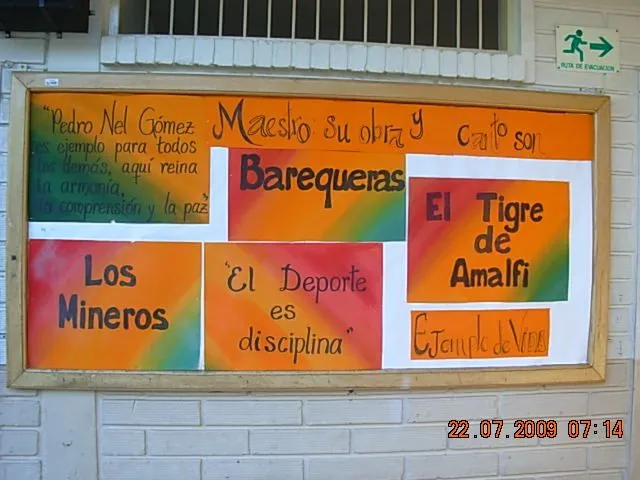 RUTA DE EVACUACION
"Pedro Nel Gómez
es ejemplo para todos
los demás, aquí reina
la armonía,
la comprensión y la paz"
Maestro su obra y canto son
Barequeras
El Tigre
de
Amalfi
Los
Mineros
"El Deporte
es
disciplina"
Ejemplo de Vida
22.07.2009 07:14